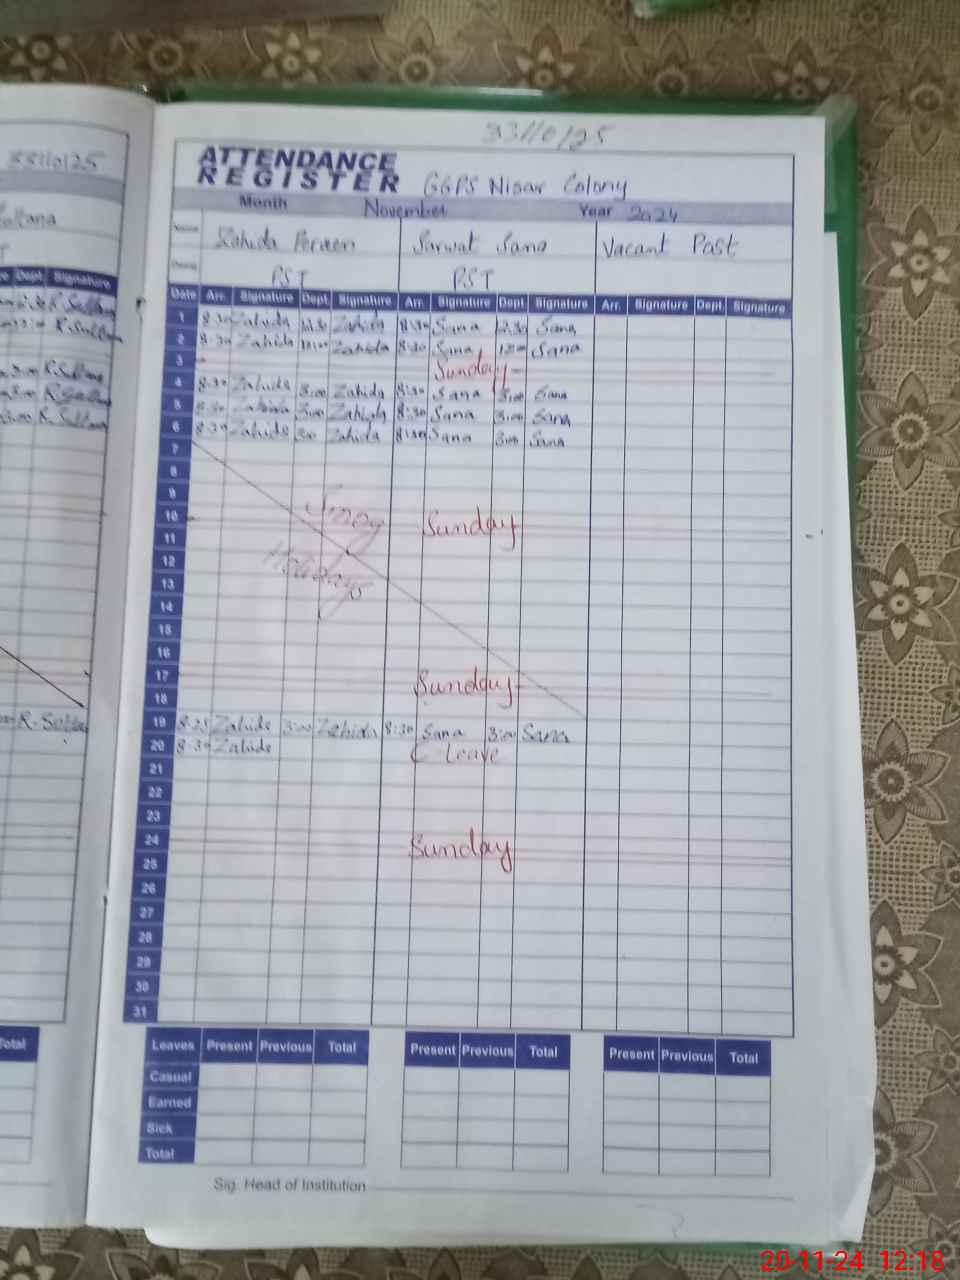 33110125
33110125
ATTENDANCE
REGISTER GGPS Nisar Colony
Month November Year 2024
Name Zahida Perveen Sarwat Sana Vacant Post
PST PST
Dept. Signature
Date Arr. Signature Dept. Signature Arr. Signature Dept. Signature Arr. Signature Dept. Signature
1 8:30 Zahida 12:30 Zahida 8:30 Sana 12:30 Sana
2 8:30 Zahida Zahida 8:30 Sana Sana
3 Sunday
4 8:30 Zahida 3:00 Zahida 8:30 Sana 3:00 Sana
5 8:30 Zahida 3:00 Zahida 8:30 Sana 3:00 Sana
6 8:30 Zahida 3:00 Zahida 8:30 Sana 3:00 Sana
7
8
9
10 Sunday
11
12 Holidays
13
14
15
16
17 Sunday
18
19 8:25 Zahida 3:00 Zahida 8:30 Sana 3:00 Sana
20 8:30 Zahida C-Leave
21
22
23
24 Sunday
25
26
27
28
29
30
31
Total
Leaves Present Previous Total Present Previous Total Present Previous Total
Casual
Earned
Sick
Total
Sig. Head of Institution
20-11-24 12:18